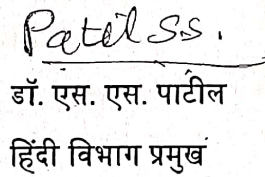 Patil SS.
डॉ. एस. एस. पाटील
हिंदी विभाग प्रमुख